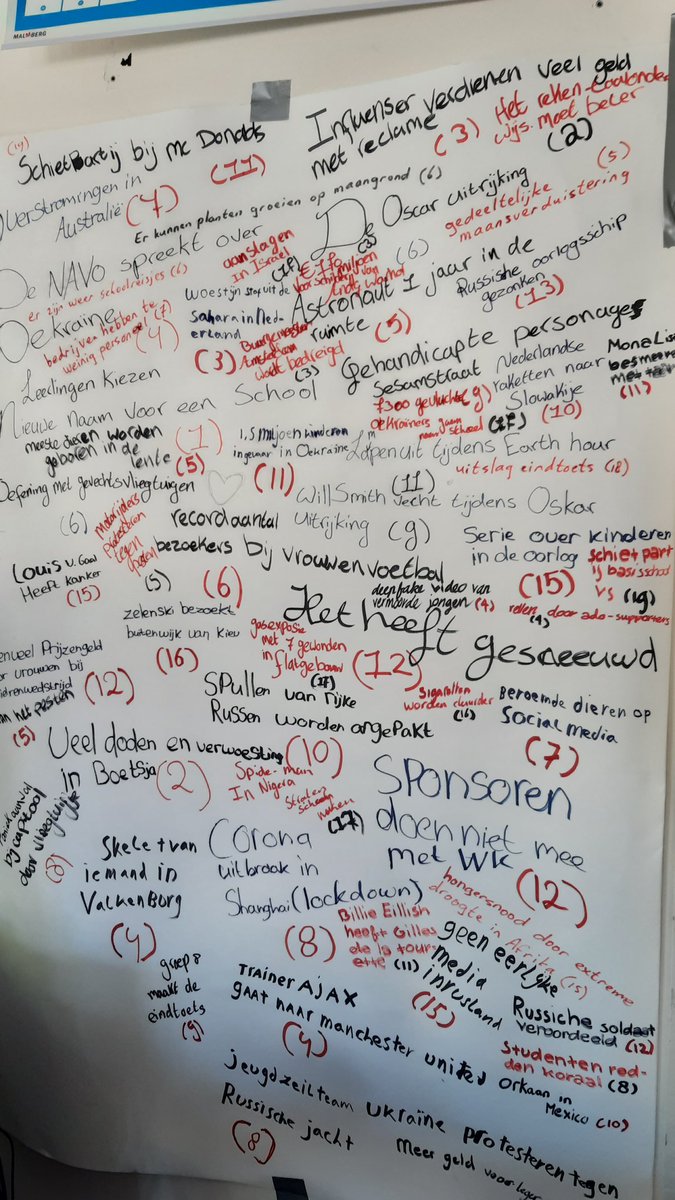 MALMBERG
(19)
Schietpartij bij mc Donalds
(11)
Influenser verdienen veel geld
met reclame
(3)
Het reken-taalonder
wijs moet beter
(2)
Overstromingen in
Australië (7)
Er kunnen planten groeien op maangrond (6)
De Oscar uitrijking
(6)
gedeeltelijke
maansverduistering
(5)
De NAVo spreekt over
Oekraine
(4)
er zijn weer schoolreisjes (6)
bedrijven hebben te
weinig personeel (7)
aanslagen
in Israel
(17)
woestijn stof uit de
sahara in Ned-
erland
(3)
voor schilderij van
Andy Warhol
(3)
Astronaut 1 jaar in de
ruimte (5)
Russische oorlogsschip
gezonken
(13)
Burgemeester
Amsterdam
wordt bedreigd
(3)
Leerlingen kiezen
Nieuwe Naam voor een School
(1)
Gehandicapte personages
Sesamstraat
(9)
7300 gevluchte
oekrainers gaan
naar school (17)
Nederlandse
raketten naar
Slowakije
(10)
Mona Lisa
besmeurd
met taart
(11)
meeste dieren worden
geboren in de
lente (5)
1,5 miljoen kinderen
in gevaar in Oekraine
(11)
Lampen uit tijdens Earth hour
(11)
uitslag eindtoets (18)
Oefening met gevechtsvliegtuigen
(6)
Will Smith vecht tijdens Oskar
Uitrijking (9)
Motorijders
protesteren
tegen
pesten
(5)
recordaantal
bezoekers bij vrouwenvoetbal
(6)
Serie over kinderen
in de oorlog
(15)
schietpart
ij basisschool
VS (19)
Louis v. Gaal
Heeft kanker
(15)
deepfake video van
vermoorde jongen (4)
rellen door ado-supporters
(4)
zelenski bezoekt
buitenwijk van Kiev
(16)
Het heeft
gesneeuwd
(12)
gasexposie
met 7 gewonden
in flatgebouw
(17)
eveel Prijzengeld
or vrouwen bij
(12)
pesten
(5)
Spullen van rijke
Russen worden aangepakt
(10)
Sigaretten
worden duurder
(16)
Beroemde dieren op
Social media
(7)
Veel doden en verwoesting
in Boetsja (2)
Spider-man
In Nigera
(17)
Sponsoren
doen niet mee
met WK
(12)
bij capitool
door vliegtuigje
(8)
Skelet van
iemand in
Valkenborg
(4)
Corona
uitbraak in
Shanghai (lockdown)
(8)
hongersnood door extreme
droogte in Afrika (15)
Billie Eillish
heeft Gilles
de la tour-
ette (11)
geen eerlijke
media
in rusland
(15)
Russiche soldaat
veroordeeld (12)
groep 8
maakt de
eindtoets
(9)
Trainer Ajax
gaat naar manchester united
(4)
Studenten red-
den koraal (8)
orkaan in
Mexico (10)
jeugdzeilteam Ukraïne protesteren tegen
Russische jacht
(8)
Meer geld voor leger